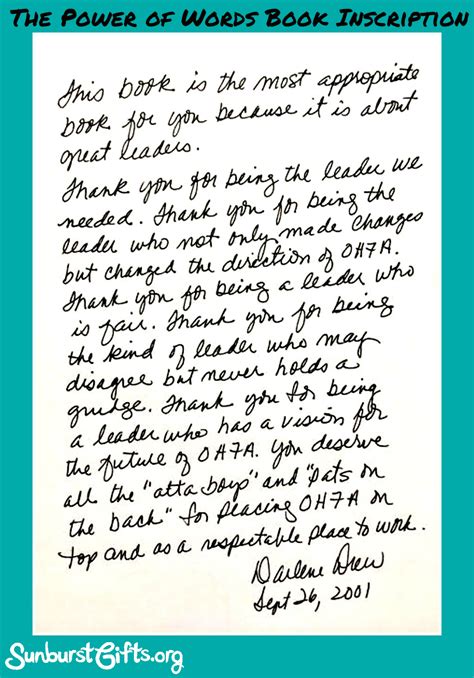 The Power of Words Book Inscription
This book is the most appropriate
book for you because it is about
great leaders.
Thank you for being the leader we
needed. Thank you for being the
leader who not only made changes
but changed the direction of OH7A.
Thank you for being a leader who
is fair. Thank you for being
the kind of leader who may
disagree but never holds a
grudge. Thank you for being
a leader who has a vision for
the future of OH7A. You deserve
all the "atta boys" and "pats on
the back" for placing OH7A on
top and as a respectable place to work.
Darlene Drew
Sept 26, 2001
SunburstGifts.org